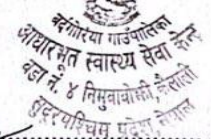 बर्दगोरिया गाउँपालिका
आधारभूत स्वास्थ्य सेवा केन्द्र
वडा नं. ४ निमुवाबोझी, कैलाली
सुदूरपश्चिम प्रदेश नेपाल